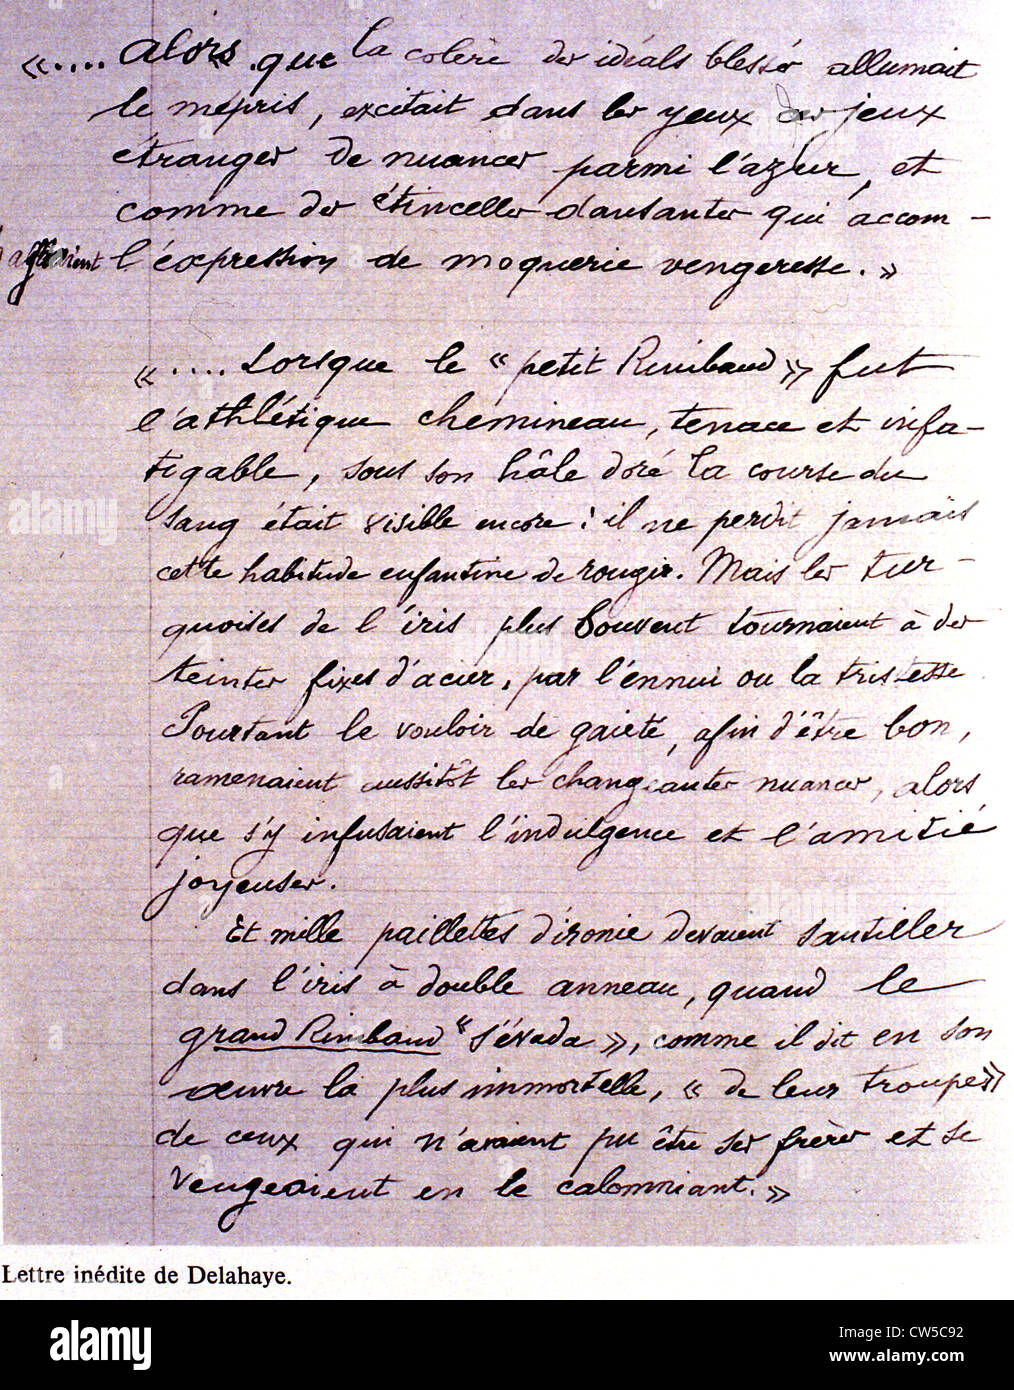 «.... alors que la colère des idéals blessés allumait
le mépris, excitait dans les yeux des jeux
étranges de nuances parmi l'azur, et
comme des étincelles dansantes qui accom-
l'expression de moquerie vengeresse. »
«.... Lorsque le « petit Rimbaud » fut
l'athlétique chemineau, tenace et infa-
tigable, sous son hâle doré la course du
sang était visible encore : il ne perdit jamais
cette habitude enfantine de rougir. Mais les tur-
quoises de l'iris plus souvent tournaient à des
teintes fixes d'acier, par l'ennui ou la tristesse
Pourtant le vouloir de gaieté, afin d'être bon,
ramenaient aussitôt les changeantes nuances, alors
que s'y infusaient l'indulgence et l'amitié
joyeuses.
Et mille paillettes d'ironie devaient sautiller
dans l'iris à double anneau, quand le
grand Rimbaud « s'évada », comme il dit en son
œuvre la plus immortelle, « de leur troupe »
de ceux qui n'avaient pu être ses frères et se
vengeaient en le calomniant. »
Lettre inédite de Delahaye.
alamy
Image ID: CW5C92
www.alamy.com